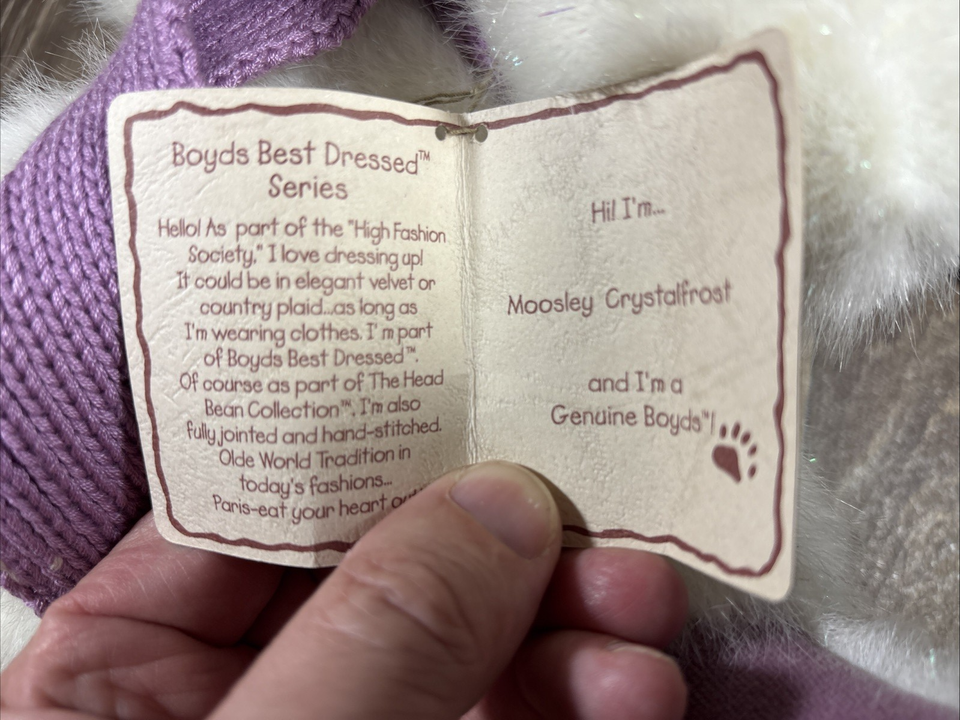 Boyds Best Dressed™
Series
Hello! As part of the "High Fashion
Society," I love dressing up!
It could be in elegant velvet or
country plaid...as long as
I'm wearing clothes. I'm part
of Boyds Best Dressed™.
Of course as part of The Head
Bean Collection™, I'm also
fully jointed and hand-stitched.
Olde World Tradition in
today's fashions...
Paris-eat your heart
Hi! I'm...
Moosley Crystalfrost
and I'm a
Genuine Boyds™!